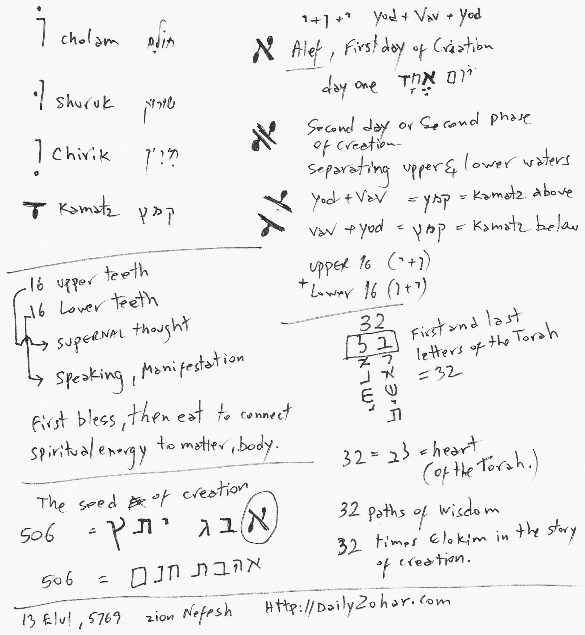 וֹ cholam חולם
וּ shuruk שורוק
וִ Chirik חיריק
Kamatz קמץ
16 upper teeth
16 Lower teeth
SUPERNAL thought
Speaking, Manifestation
First bless, then eat to connect
spiritual energy to matter, body.
The seed of creation
506 = א ב ג י ת ץ
506 = אהבת חנם
י+ו+י yod + Vav + yod
א Alef, First day of Creation
day one יום אחד
א Second day or Second phase
of creation
separating upper & lower waters
yod + Vav = קמץ = Kamatz above
vav + yod = קמץ = Kamatz below
upper 16 (י+ו)
+ Lower 16 (ו+י)
32
ב ל
ר א
א ר
ש ש
י י
ת
First and last
letters of the Torah
= 32
32 = לב = heart
(of the Torah.)
32 paths of wisdom
32 times Elokim in the story
of creation.
13 Elul, 5769 zion Nefesh Http://DailyZohar.com